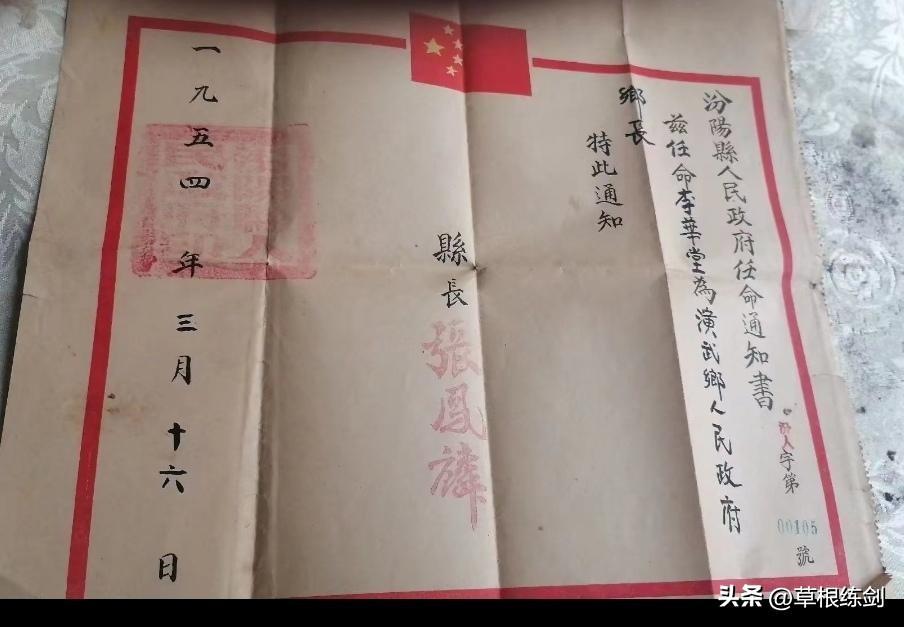 汾陽縣人民政府任命通知書
汾人字第00105號
兹任命李華堂為演武鄉人民政府
鄉長
特此通知
縣長張鳳麟
一九五四年三月十六日
头条 @草根练剑